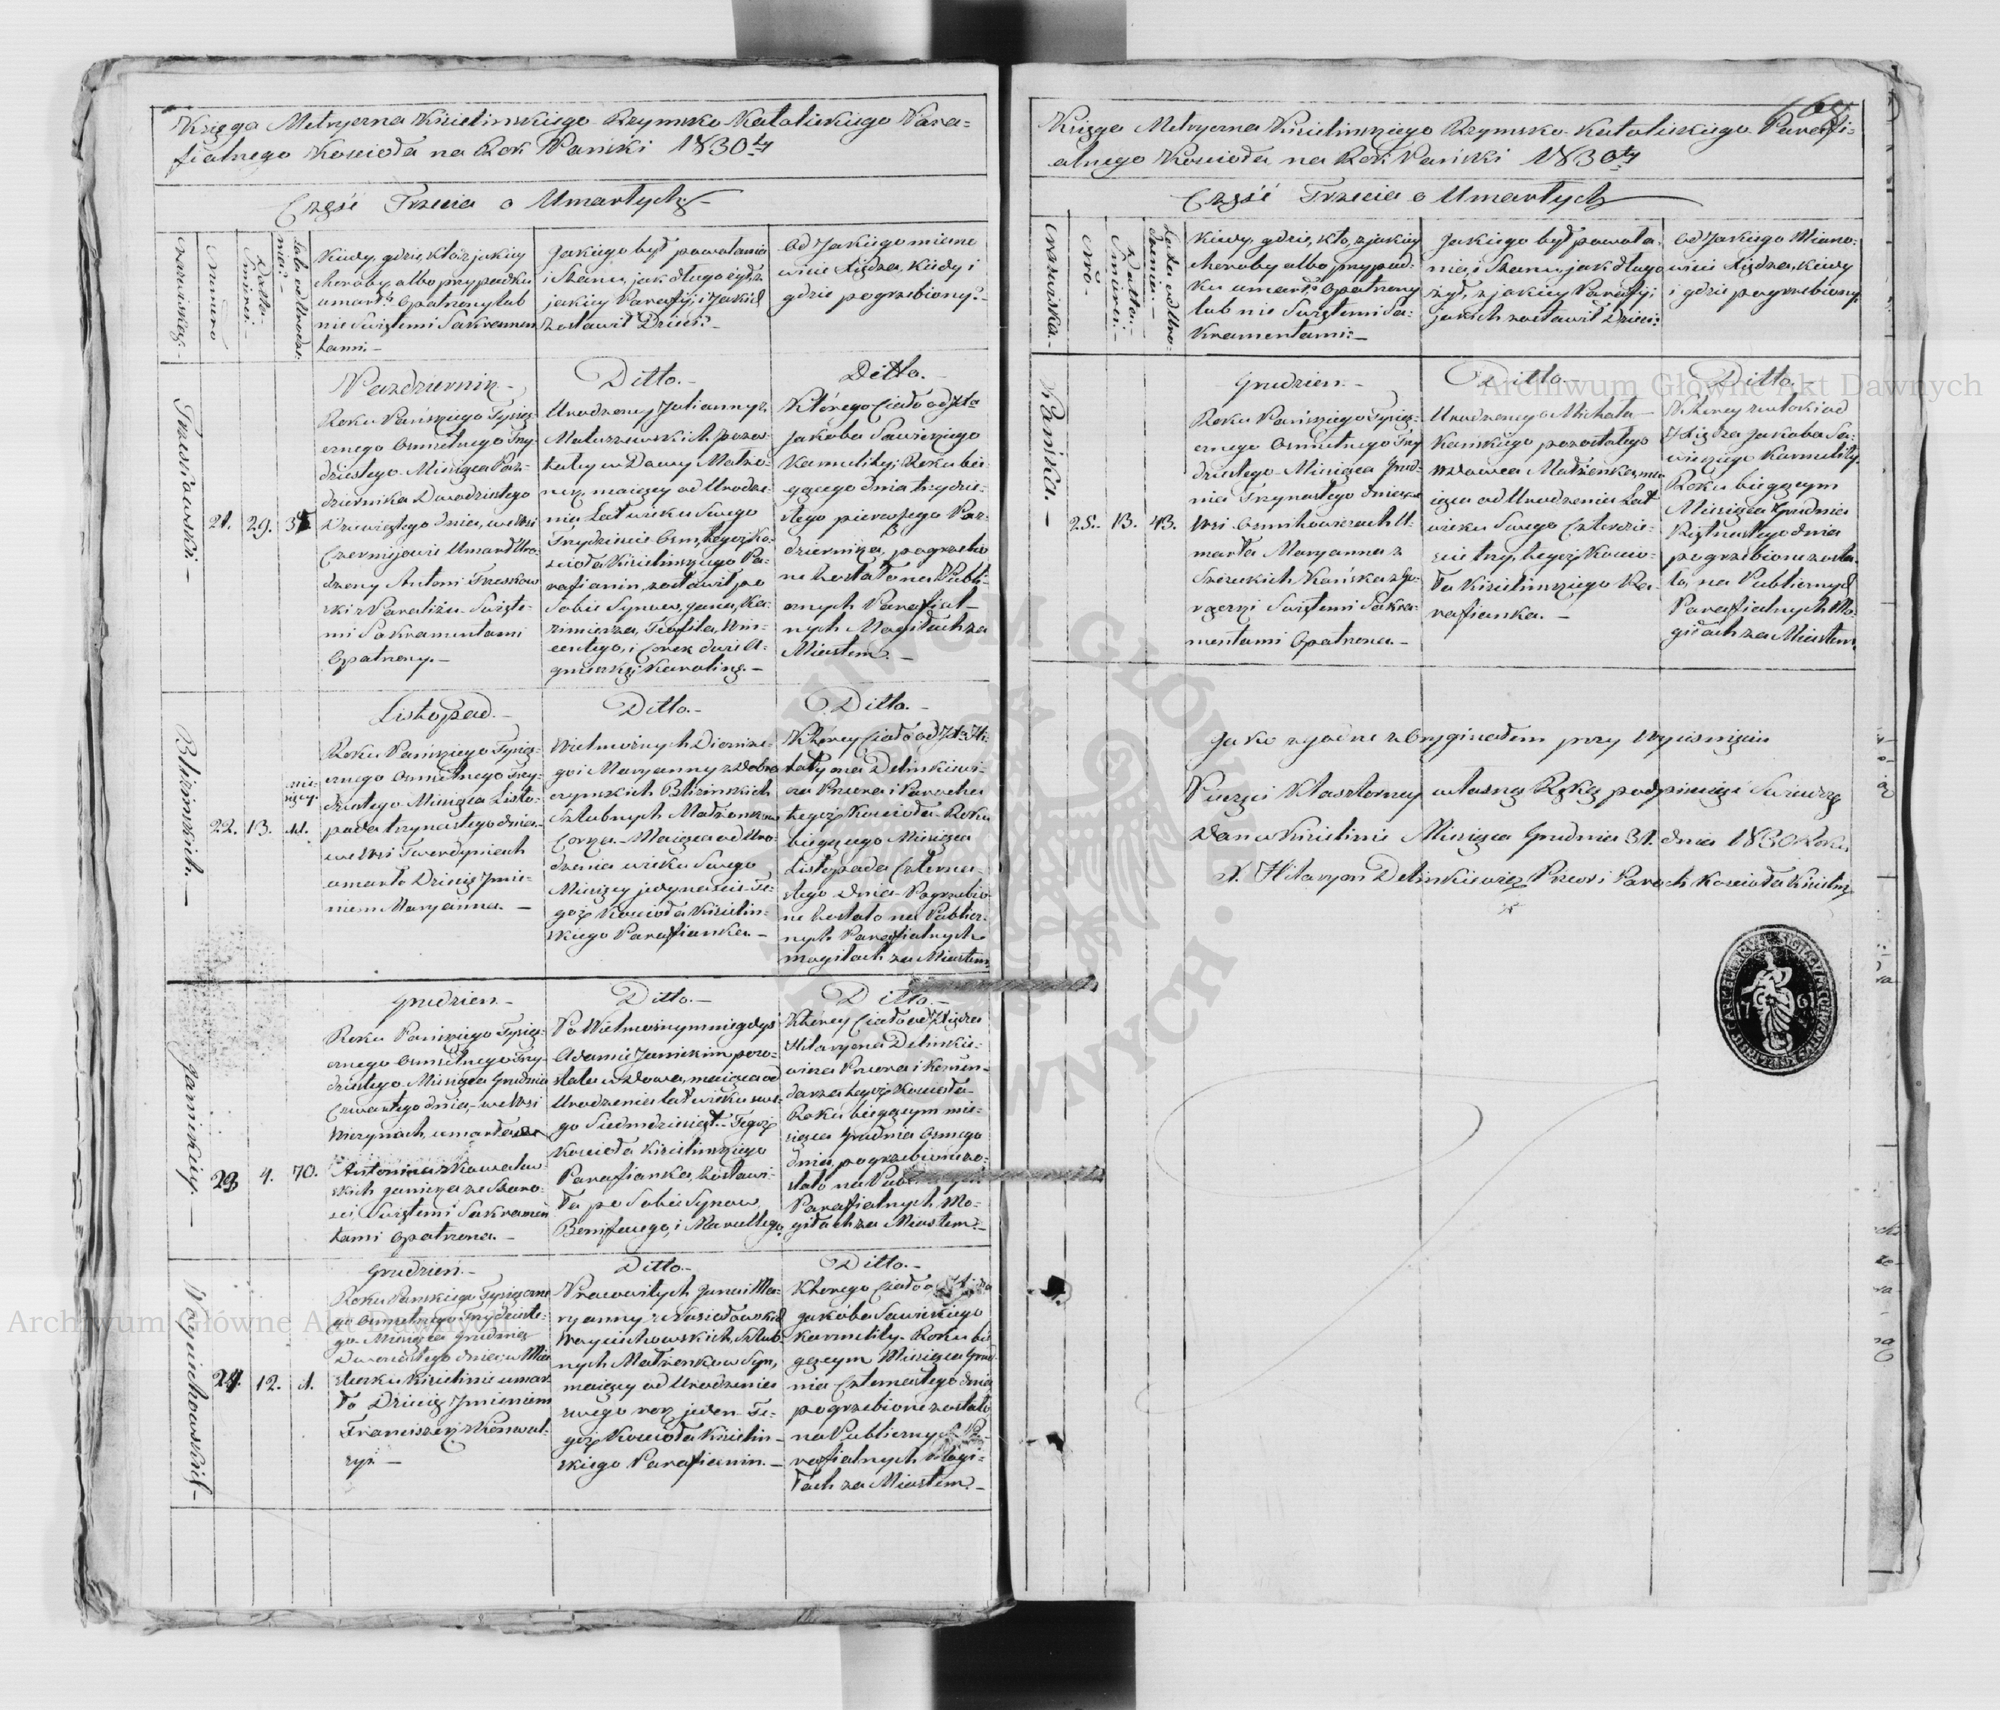 Księga Metryczna Kisielinskiego Rzymsko Katolickiego Para=
fialnego Kościoła na Rok Pański 1830ty
Część Trzecia o Umarłych
nazwiska
Numero
Datta Śmierci
Kiedy, gdzie, kto z jakiey
choroby albo przypadku
umarł? Opatrzony lub
nie Świętemi Sakramen
tami.
Jakiego był powołania
i Stanu, jak długo żył, z
jakiey Parafij, i Jakich
zostawił Dzieci?
Od Jakiego miano
wicie Xiędza, kiedy i
gdzie pogrzebiony?
Trzeskowski
21.
29.
Pazdziernik
Roku Pańskiego Tysią
cznego Osmsetnego Trzy
dziestego Miesiąca Paz=
dziernika Dwudziestego
Dziewiątego dnia, we Wsi
Umarł Uro
dzony Antoni Trzeskow
ski z Paraliżu Święte=
mi Sakramentami
Opatrzony.
Ditto.
Urodzoney Julianny z
Matuszewskich pozos=
tałey w Dowy Małżo=
nek, maiący od Urodze
nia Lat wieku Swego
Trzydzieście Osm, tegoż Ko=
ścioła Kisielinskiego Pa=
rafianin, zostawił po
Sobie Synow, Jana, Ka=
zimierza, Teofila, Win=
centego, i Corek dwie A=
gnieszkę i Karolinę.
Ditto.
Którego Ciało od Xdza
Jakoba Sawickiego
Karmelity, Roku bie=
gącego dnia trzydzie=
stego pierwszego Paz=
dziernika, pogrzebio
ne zostało na Publi=
cznych Parafial=
nych Mogiłach za
Miastem.
Blizinskich
22.
13.
mie=
sięcy
11.
Listopad.
Roku Pańskiego Tysią=
cznego Osmsetnego Trzy=
dziestego Miesiąca Listo=
pada trzynastego dnia,
we Wsi Twerdyniach
umarło Dziecię Jmie=
niem Maryanna.
Ditto.
Wielmożnych Dionize=
go i Maryanny z
Blizinskich
Szlubnych Małżonkow
Corka. Maiąca od Uro=
dzenia wieku Swego
Miesięcy jedynaście Te=
goż Kościoła Kisielin=
skiego Parafianka.
Ditto.
Którey Ciało od Xdza Hi=
laryona Delinkiewi=
cza Przeora i Parocha
tegoż Kościoła Roku
bieżącego Miesiąca
Listopada Czterna=
stego Dnia Pogrzebio
ne zostało na Publicz=
nych Parafialnych
mogiłach za Miastem
Janickiey
23
4.
70.
Grudzien
Roku Pańskiego Tysią=
cznego Osmsetnego Trzy=
dziestego Miesiąca Grudnia
Czwartego dnia, we Wsi
umarła
Antonina z Kowalew=
skich Janicka ze Staro=
ści, Świętemi Sakramen
tami Opatrzona.
Ditto.
Po Wielmożnym niegdyś
Adamie Janickim pozo=
stała wdowa, maiąca od
Urodzenia lat wieku swe
go Siedmdziesiąt. Tegoż
Kościoła Kisielinskiego
Parafianka, zostawi=
ła po Sobie Synow,
Bonifacego, i Marcellego
Ditto.
Którey Ciało od Xiędza
Hilaryona Delinkie=
wicza Przeora i Komen=
darza tegoż Kościoła
Roku bieżącym mie=
siąca Grudnia Osmego
dnia, pogrzebione zo=
stało na
Parafialnych Mo=
giłach za Miastem
Woyciechowskich
24.
12.
1.
Grudzień
Roku Panskiego Tysiączne
go Osmsetnego Trzydzieste=
go Miesiąca Grudnia
Dwonastego dnia, w Mia
steczku Kisielinie umar
ło Dziecię Jmieniem
Franciszek
Ditto.
Pracowitych Jana i Ma=
ryanny z
Woyciechowskich, Szlub=
nych Małżonkow Syn,
maiący od Urodzenia
swego rok jeden. Te=
goż Kościoła Kisielin=
skiego Parafianin.
Ditto.
Którego Ciało od Xiędza
Jakóba Sawickiego
Karmelity. Roku bie
gącym Miesiąca Grud
nia Czternastego dnia
pogrzebione zostało
na Publicznych Pa=
rafialnych Mogi=
łach za Miastem.
Księga Metryczna Kisielinskiego Rzymsko Katolickiego Parafi=
alnego Kościoła na Rok Pański 1830ty
Część Trzecia o Umarłych
nazwiska.
Nro
Datta Śmierci
Kiedy, gdzie, kto, z jakiey
choroby albo przypad=
ku umarł? Opatrzony
lub nie Świętemi Sa=
kramentami?
Jakiego był powoła=
nia, i Stanu, jak długo
żył, z jakiey Parafij,
jakich zostawił Dzieci?
Od Jakiego Miano=
wicie Xiędza, kiedy
i gdzie pogrzebiony
Kańska
25.
13.
43.
Grudzien
Roku Pańskiego Tysią=
cznego Osmsetnego Trzy
dziestego Miesiąca Grud=
nia Trzynastego dnia, we
Wsi U=
marła Maryanna z
Kańska z Go=
rączki Świętemi Sakra=
mentami Opatrzona.
Ditto
Urodzonego Michała
Kańskiego pozostałego
Wdowca Małżonka, ma
iąca od Urodzenia Lat
wieku Swego Czterdzie=
ście trzy, tegoż Kościo=
ła Kisielinskiego Pa=
rafianka.
Ditto
Którey zwłoki od
Xiędza Jakoba Sa=
wickiego Karmelity
Roku bieżącym
Miesiąca Grudnia
Piętnastego dnia
pogrzebione zosta=
ło, na Publicznych
Parafialnych Mo=
giłach za Miastem
Jako zgodne z Oryginałem przy wyciśnięciu
Pieczęci Klasztorney własną Ręką podpisuię i Świadczę
Dan w Kisielinie Miesiąca Grudnia 31. dnia 1830 Roku
X. Hilaryon Delinkiewicz Przeor i Paroch Kościoła Kisielin
17 61
Archiwum Główne Akt Dawnych
Archiwum Główne Akt Dawnych